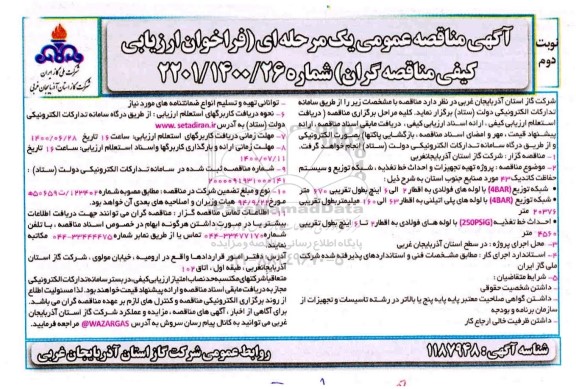 نوبت دوم
آگهی مناقصه عمومی یک مرحله ای (فراخوان ارزیابی
کیفی مناقصه گران) شماره ۲۲۰۱/۱۴۰۰/۲۶
شرکت ملی گاز ایران
شرکت گاز استان آذربایجان غربی
شرکت گاز استان آذربایجان غربی در نظر دارد مناقصه با مشخصات زیر را از طریق سامانه
تدارکات الکترونیکی دولت (ستاد) برگزار نماید. کلیه مراحل برگزاری مناقصه (دریافت
استعلام ارزیابی کیفی، ارائه اسناد ارزیابی کیفی، دریافت مابقی اسناد مناقصه، ارائه
پیشنهاد قیمت، مهر و امضای اسناد مناقصه، بازگشایی پاکتها) بصورت الکترونیکی
و از طریق درگاه سامانه تدارکات الکترونیکی دولت (ستاد) انجام خواهد گرفت.
۱- مناقصه گزار: شرکت گاز استان آذربایجانغربی
۲- موضوع مناقصه: پروژه تهیه تجهیزات و احداث خط تغذیه، شبکه توزیع و سیستم
حفاظت کاتدیک ۴۳ مورد صنایع جنوب استان به شرح ذیل:
شبکه توزیع (4BAR) با لوله های فولادی به اقطار ۲ الی ۶ اینچ بطول تقریبی ۷۷۰ متر
شبکه توزیع (4BAR) با لوله های پلی اتیلنی به اقطار ۶۳ الی ۱۶۰ میلیمتر بطول تقریبی
۲۰۳۷۶ متر
احداث خط تغذیه (250PSIG) با لوله های فولادی به اقطار ۲ و ۶ اینچ بطول تقریبی
۴۵۶۰ متر
۳- محل اجرای پروژه: در سطح استان آذربایجان غربی
۴- استاندارد اجرای کار: مطابق مشخصات فنی و استانداردهای پذیرفته شده شرکت
ملی گاز ایران
۵- شرایط متقاضیان:
- داشتن شخصیت حقوقی
- داشتن گواهی صلاحیت معتبر پایه پنج یا بالاتر در رشته تاسیسات و تجهیزات از
سازمان برنامه و بودجه
- داشتن ظرفیت خالی ارجاع کار
- توانائی تهیه و تسلیم انواع ضمانتنامه های مورد نیاز
۶- نحوه دریافت کاربرگهای استعلام ارزیابی: از طریق درگاه سامانه تدارکات الکترونیکی
دولت (ستاد) به آدرس www.setadiran.ir
۷- مهلت زمانی دریافت کاربرگهای استعلام ارزیابی: ساعت ۱۶ تاریخ ۱۴۰۰/۰۶/۲۸
۸- مهلت زمانی ارائه و بارگذاری کاربرگها و اسناد استعلام ارزیابی: ساعت ۱۶ تاریخ
۱۴۰۰/۰۷/۱۱
۹- شماره مناقصه ثبت شده در سامانه تدارکات الکترونیکی دولت (ستاد):
۱۰- نوع و مبلغ تضمین شرکت در مناقصه: مطابق مصوبه شماره ۱۲۳۴۰۲/ت۵۰۶۵۹ه
مورخ ۹۴/۹/۲۲ هیات وزیران و اصلاحیه های بعدی آن خواهد بود.
۱۱- اطلاعات تماس مناقصه گزار: مناقصه گران می توانند جهت دریافت اطلاعات
بیشتر یا در صورت داشتن هرگونه ابهام در خصوص اسناد مناقصه، با تلفن
شماره تماس یا از طریق نمابر شماره مکاتبه
نمایند.
آدرس: دفتر امور قراردادها واقع در ارومیه، خیابان مولوی، شرکت گاز استان
آذربایجانغربی، طبقه اول، اتاق ۱۰۲
متعاقبا شرکتهای مکتسب حد نصاب امتیاز ارزیابی کیفی، در بستر سامانه تدارکات الکترونیکی
مجاز به دریافت مابقی اسناد مناقصه و ارائه پیشنهاد قیمت خواهند بود. لذا مسئولیت اطلاع
از روند برگزاری الکترونیکی مناقصه و کنترل های لازم بر عهده مناقصه گران می باشد.
برای آگاهی از اخبار، آگهی های مناقصه، مزایده و عملکرد شرکت گاز استان آذربایجان
غربی می توانید به کانال پیام رسان سروش به آدرس WAZARGAS@ مراجعه فرمایید.
شناسه آگهی: ۱۱۸۷۹۴۸
روابط عمومی شرکت گاز استان آذربایجان غربی